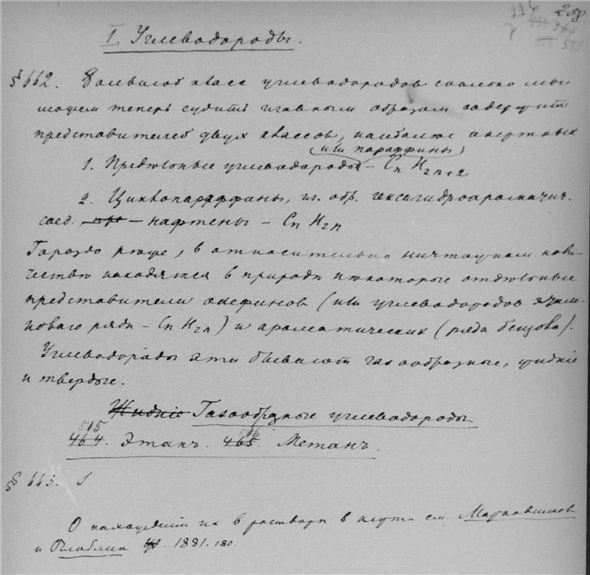 258
I. Углеводороды.
§ 662. класс углеводородов сколько мы
можем теперь судить главным образом содержит
представителей двух классов, наиболее инертных
или парафины
1. Предельные углеводороды – Cn H2n+2
2. Циклопараффины, гл. обр. гексагидроароматич.
соед. – нафтены – Cn H2n
Гораздо реже, в относительно ничтожном коли-
честве находятся в природе некоторые отдельные
представители олефинов (или углеводородов этиле-
нового ряда – Cn H2n) и ароматических (ряда бензола).
Углеводороды эти бывают газообразные, жидкие
и твердые.
Жидкие Газообразные углеводороды.
515
464. Этанъ. 465. Метанъ.
§ 663.
О нахождении их в растворе в нефти см. Марковников
и Оглоблин 1881. 180.